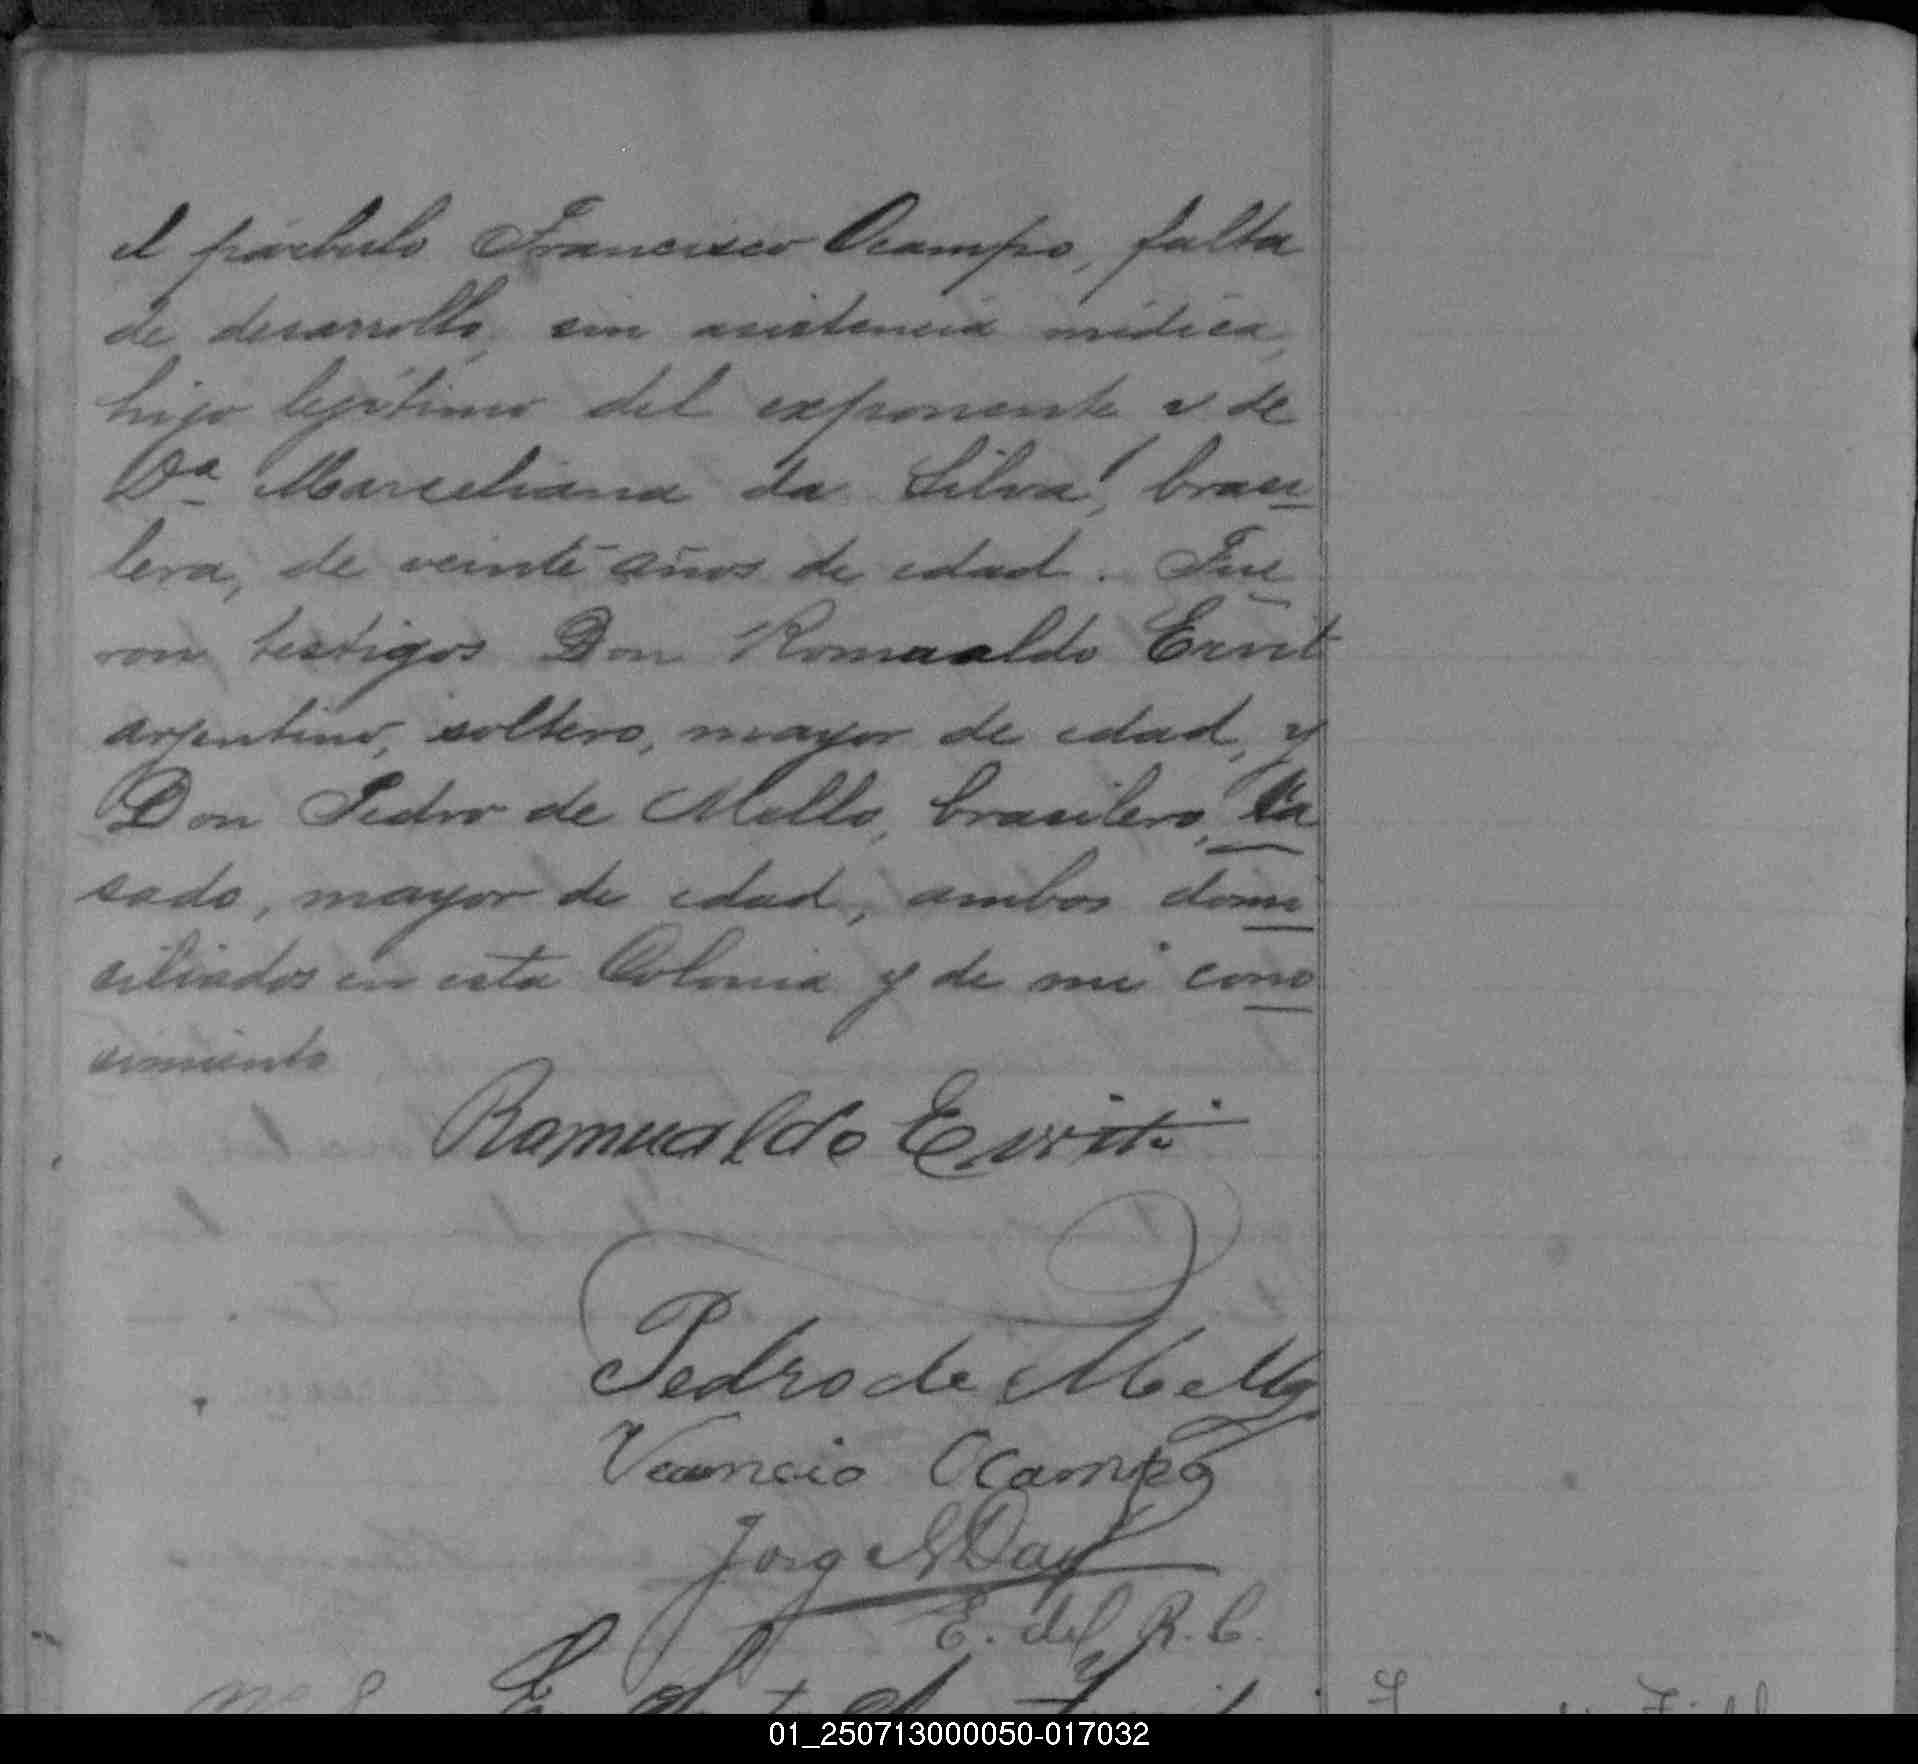 el párbulo Francisco Ocampo, falta
de desarrollo, sin asistencia médica,
hijo legítimo del exponente y de
Da Marceliana da Silva, brasi
lera, de veinte años de edad. Fue
ron testigos Don Romualdo Ervit
argentino, soltero, mayor de edad, y
Don Pedro de Mello, brasilero, ca
sado, mayor de edad, ambos domi
ciliados en esta Colonia y de mi cono
cimiento
Romualdo Erviti
Pedro de Mello
Venancio Ocampo
Jorge N Day
E. del R. C.
No 8
01_250713000050-017032